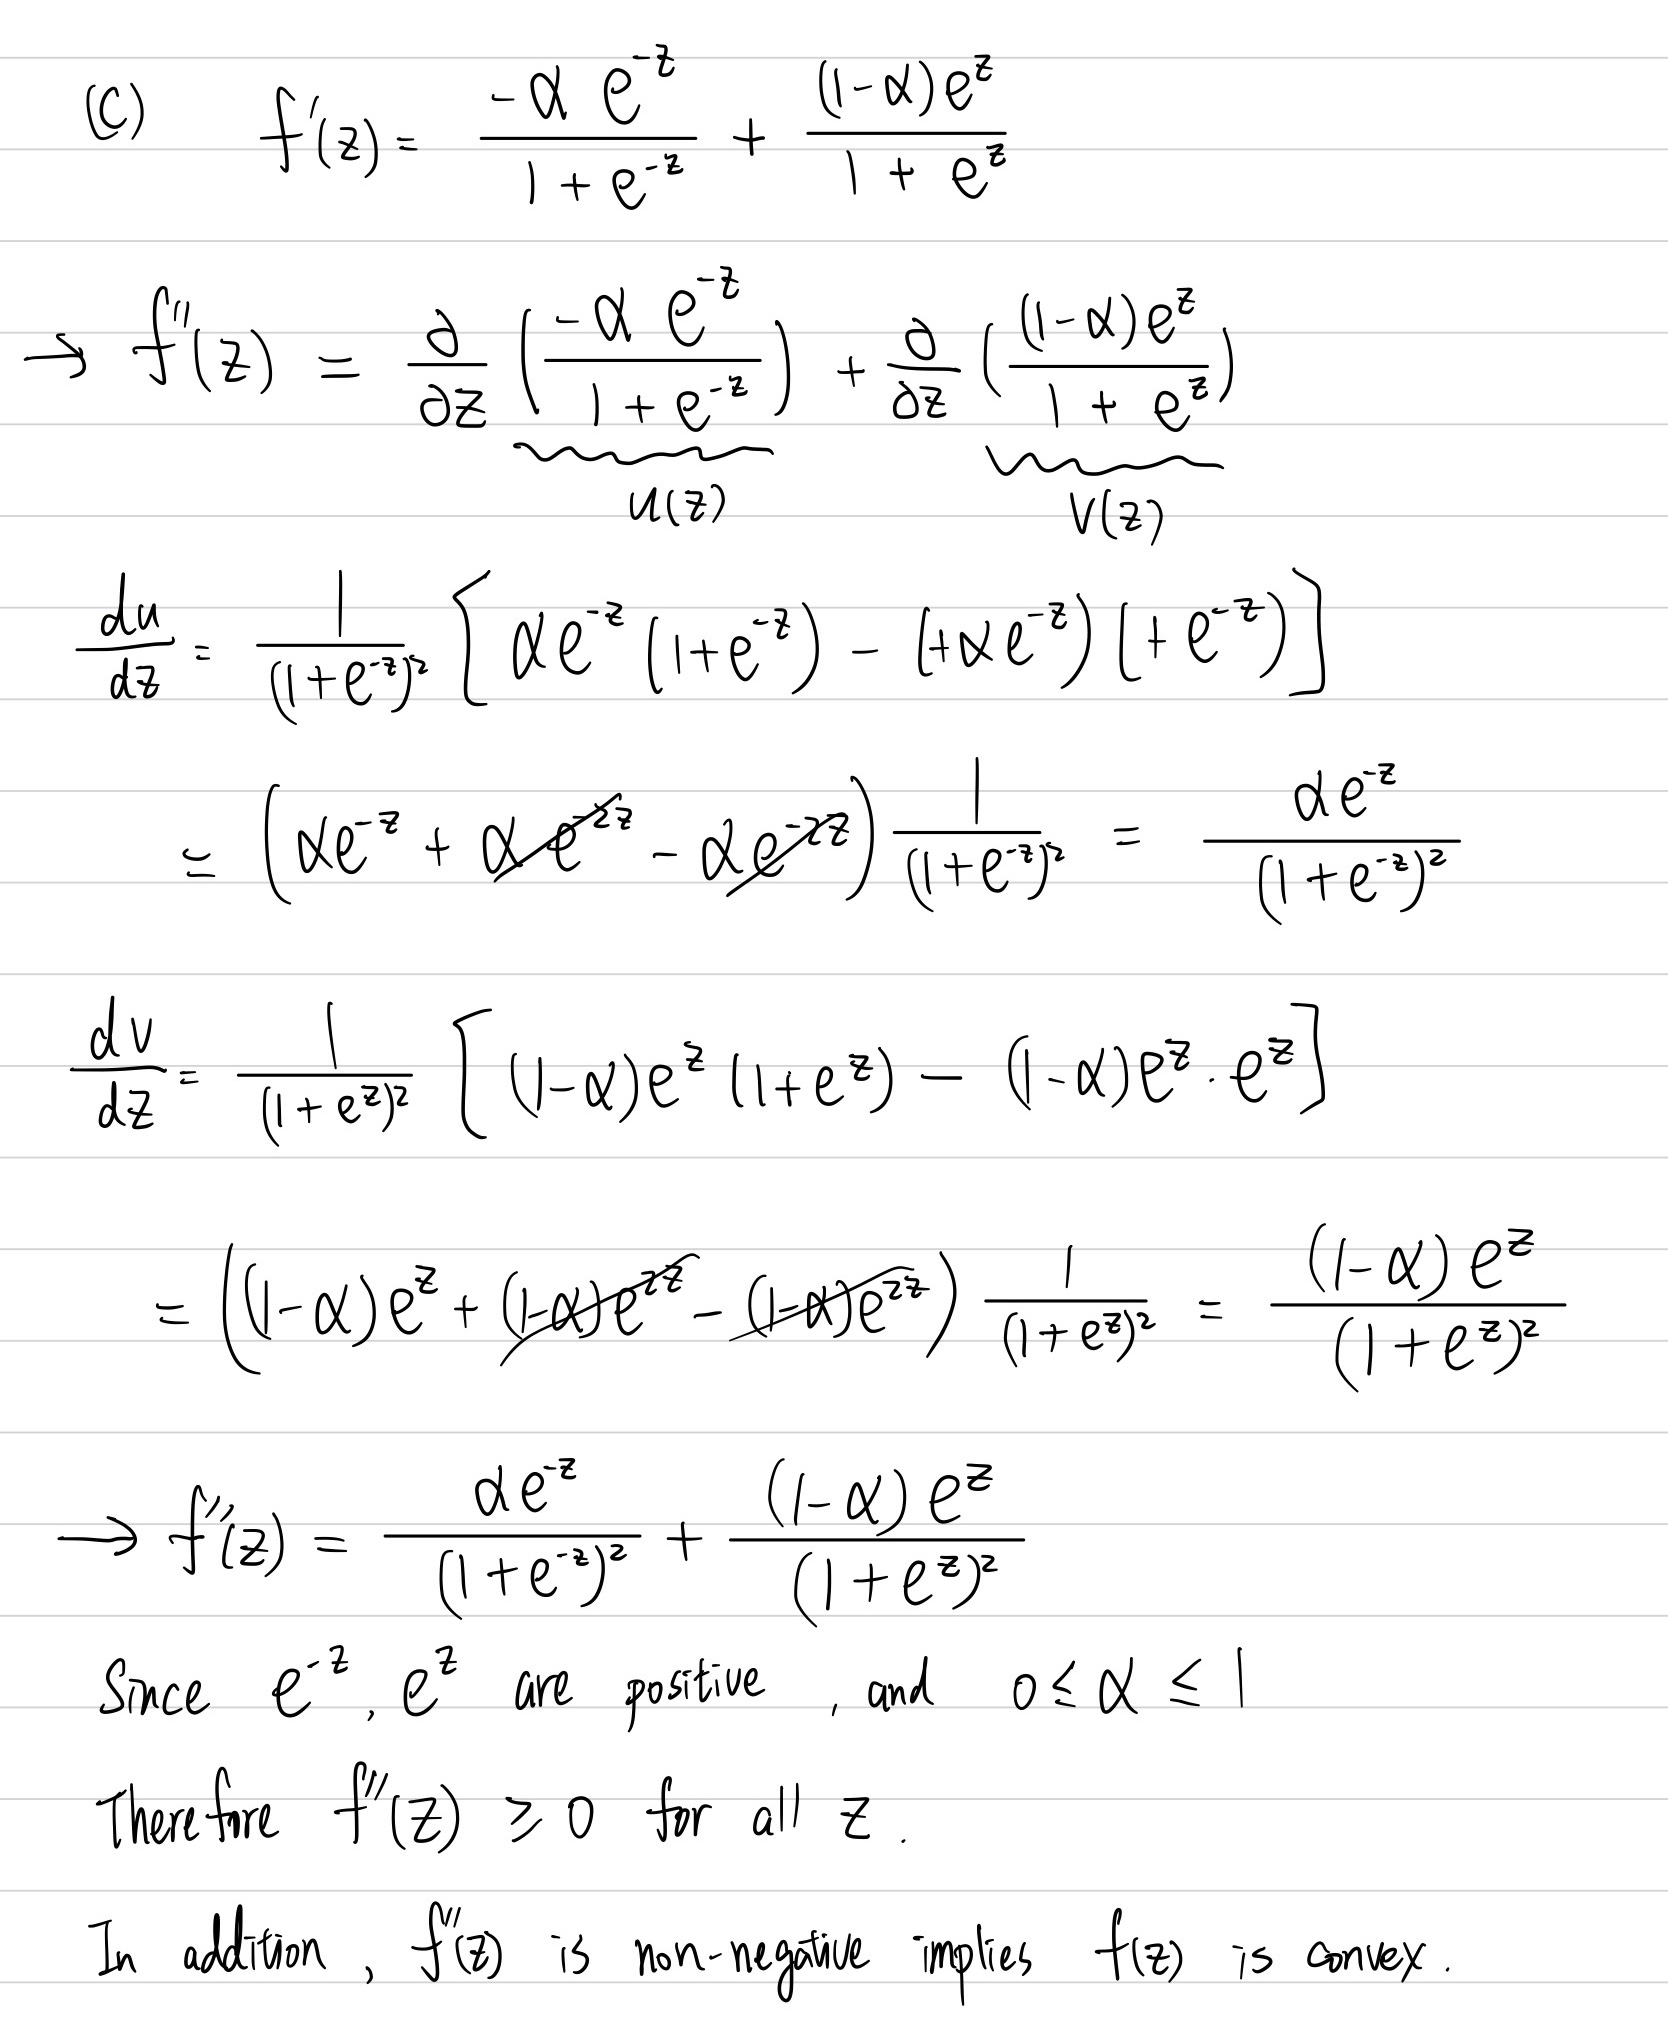 (C) f'(z) = \frac{-α e^{-z}}{1 + e^{-z}} + \frac{(1-α)e^{z}}{1 + e^{z}}
→ f''(z) = \frac{∂}{∂z} (\frac{-α e^{-z}}{1 + e^{-z}}) + \frac{∂}{∂z} (\frac{(1-α)e^{z}}{1 + e^{z}})
u(z) v(z)
\frac{du}{dz} = \frac{1}{(1+e^{-z})^2} [αe^{-z}(1+e^{-z}) - (+αe^{-z})(+e^{-z})]
= (αe^{-z} + αe^{-2z} - αe^{-2z}) \frac{1}{(1+e^{-z})^2} = \frac{αe^{-z}}{(1+e^{-z})^2}
\frac{dv}{dz} = \frac{1}{(1+e^{z})^2} [(1-α)e^{z}(1+e^{z}) - (1-α)e^{z}·e^{z}]
= ((1-α)e^{z} + (1-α)e^{2z} - (1-α)e^{2z}) \frac{1}{(1+e^{z})^2} = \frac{(1-α)e^{z}}{(1+e^{z})^2}
→ f''(z) = \frac{αe^{-z}}{(1+e^{-z})^2} + \frac{(1-α)e^{z}}{(1+e^{z})^2}
Since e^{-z}, e^{z} are positive, and 0 ≤ α ≤ 1
Therefore f''(z) ≥ 0 for all z.
In addition, f''(z) is non-negative implies f(z) is convex.